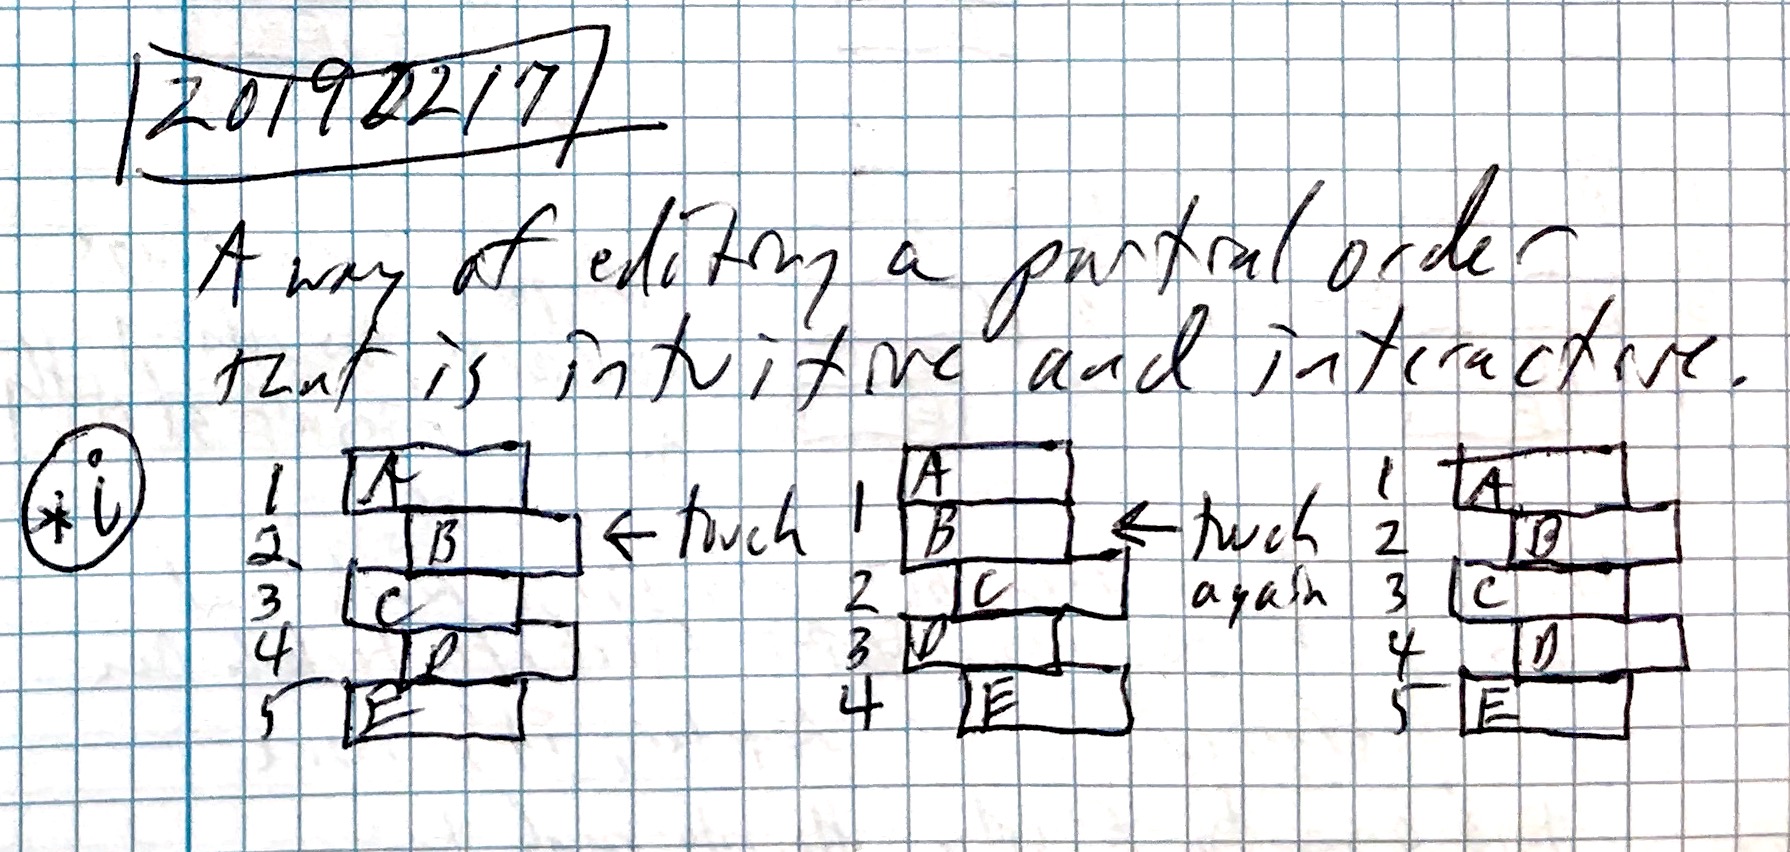 20190217
A way of editing a partial order
that is intuitive and interactive.
*i
1 A 1 A 1 A
2 B ← touch B ← touch again 2 B
3 C 2 C 3 C
4 D 3 D 4 D
5 E 4 E 5 E